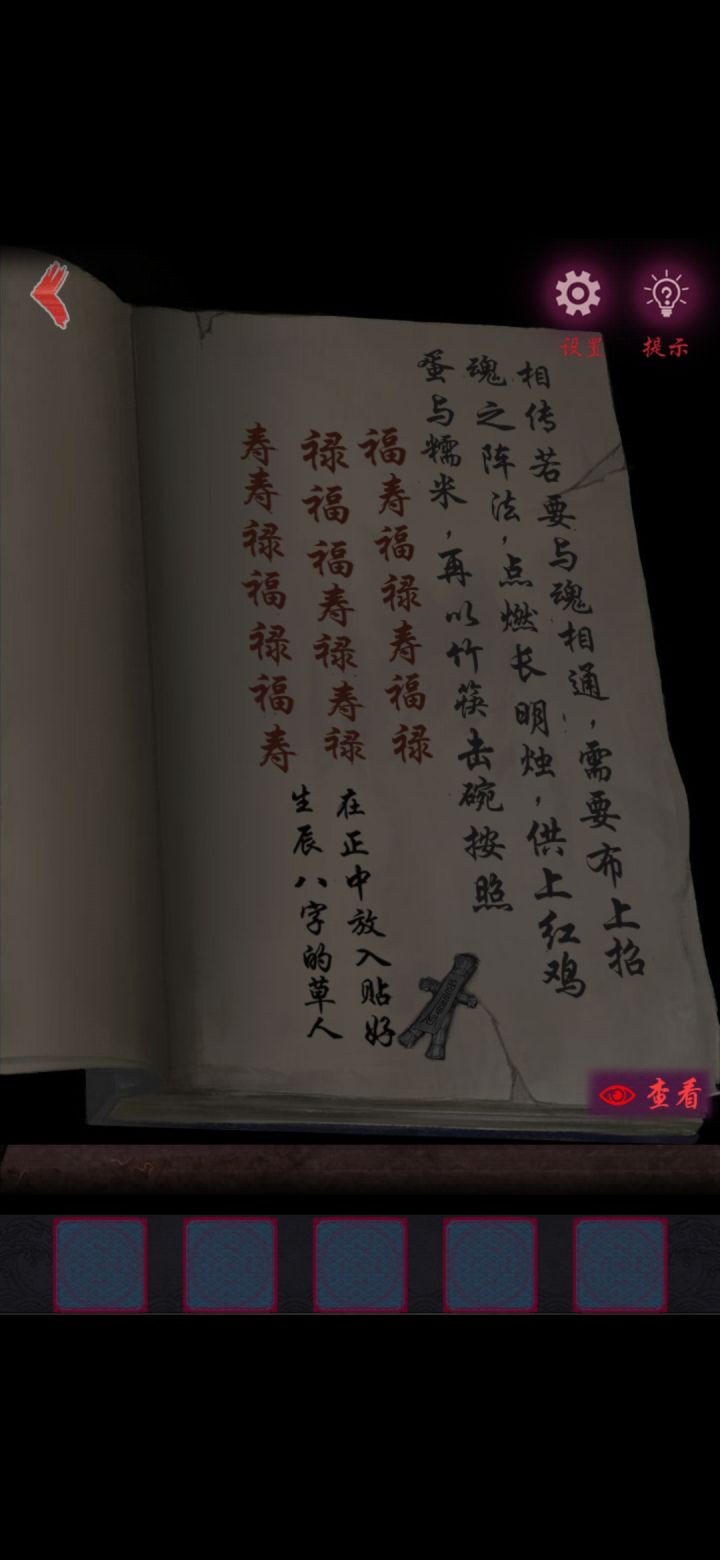 设置
提示
相传若要与魂相通，需要布上招
魂之阵法，点燃长明烛，供上红鸡
蛋与糯米，再以竹筷击碗按照
福寿福禄寿福禄
禄福福寿禄寿禄
寿寿禄福禄福寿
在正中放入贴好
生辰八字的草人
查看